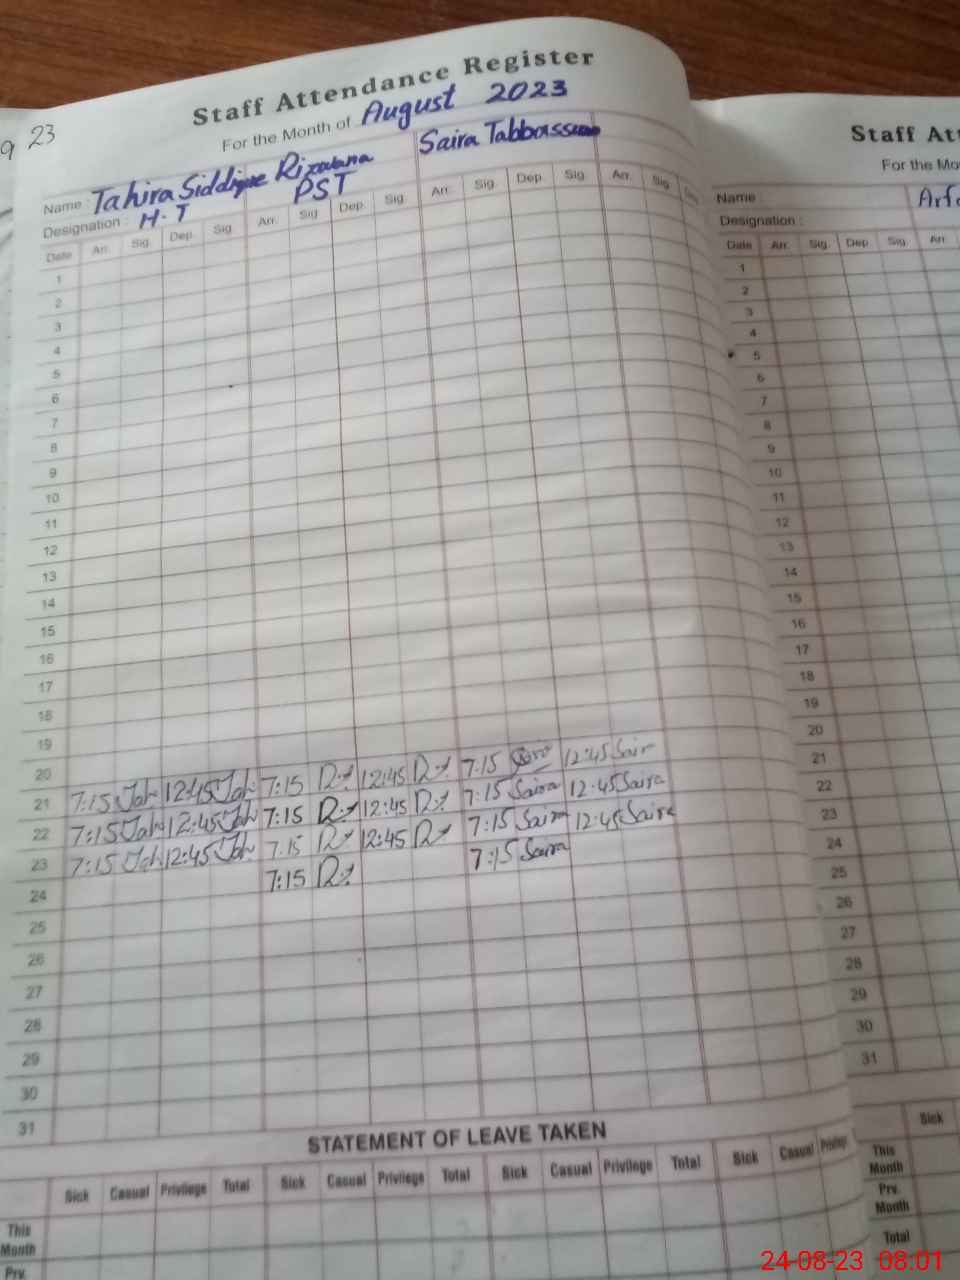 9 23
Staff Attendance Register
For the Month of August 2023
Name : Tahira Siddique Rizwana Saira Tabbassum
Designation : H.T PST
Date Arr. Sig. Dep. Sig. Arr. Sig. Dep. Sig. Arr. Sig. Dep. Sig. Arr. Sig.
1
2
3
4
5
6
7
8
9
10
11
12
13
14
15
16
17
18
19
20
21 7:15 12:45 7:15 12:45 7:15 12:45 Sair
22 7:15 12:45 7:15 12:45 7:15 Saira 12:45 Saira
23 7:15 12:45 7:15 12:45 7:15 Saira 12:45 Saira
24 7:15 7:15 Saira
25
26
27
28
29
30
31
STATEMENT OF LEAVE TAKEN
Sick Casual Privilege Total Sick Casual Privilege Total Sick Casual Privilege Total Sick Casual Privilege
This Month
Prv.
Staff Att
For the Mo
Name : Arfa
Designation :
Date Arr. Sig. Dep. Sig. Arr.
1
2
3
4
5
6
7
8
9
10
11
12
13
14
15
16
17
18
19
20
21
22
23
24
25
26
27
28
29
30
31
Sick
This Month
Prv. Month
Total
24-08-23 08:01